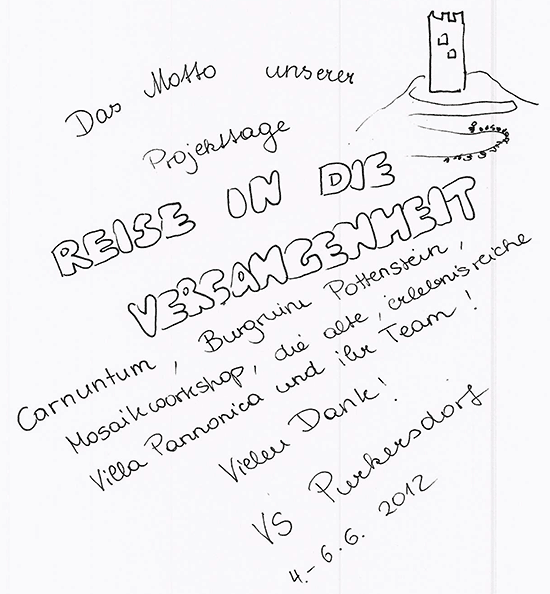 Das Motto unserer
Projekttage
REISE IN DIE
VERGANGENHEIT
Carnuntum, Burgruine Pottenstein,
Mosaikworkshop, die alte, erlebnisreiche
Villa Pannonica und ihr Team!
Vielen Dank!
VS Purkersdorf
4.-6.6. 2012